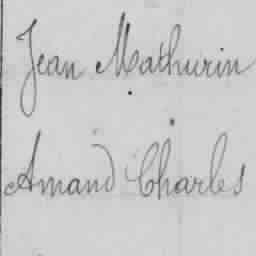 Jean Mathurin
Amand Charles